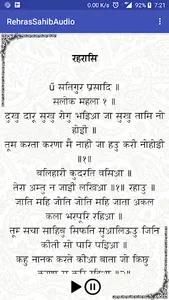 7:21
RehrasSahibAudio
रहरासि
ੴ सतिगुर प्रसादि ॥
सलोक महला १ ॥
दुखु दारू सुखु रोगु भइआ जा सुखु तामि न
होई ॥
तूम करता करणा मै नाही जा हउ करी न होई
॥१॥
बलिहारी कुदरति वसिआ ॥
तेरा अंन्तु न जाई लखिआ ॥१॥ रहाउ ॥
जाति महि जोति जोति महि जाता अकल
कला भरपूरि रहिआ ॥
तूम सचा साहिबु सिफति सुआलिउु जिनि
कीती सो पारि पइिआ ॥
कहु नानक करते कीआ बाता जो किछु